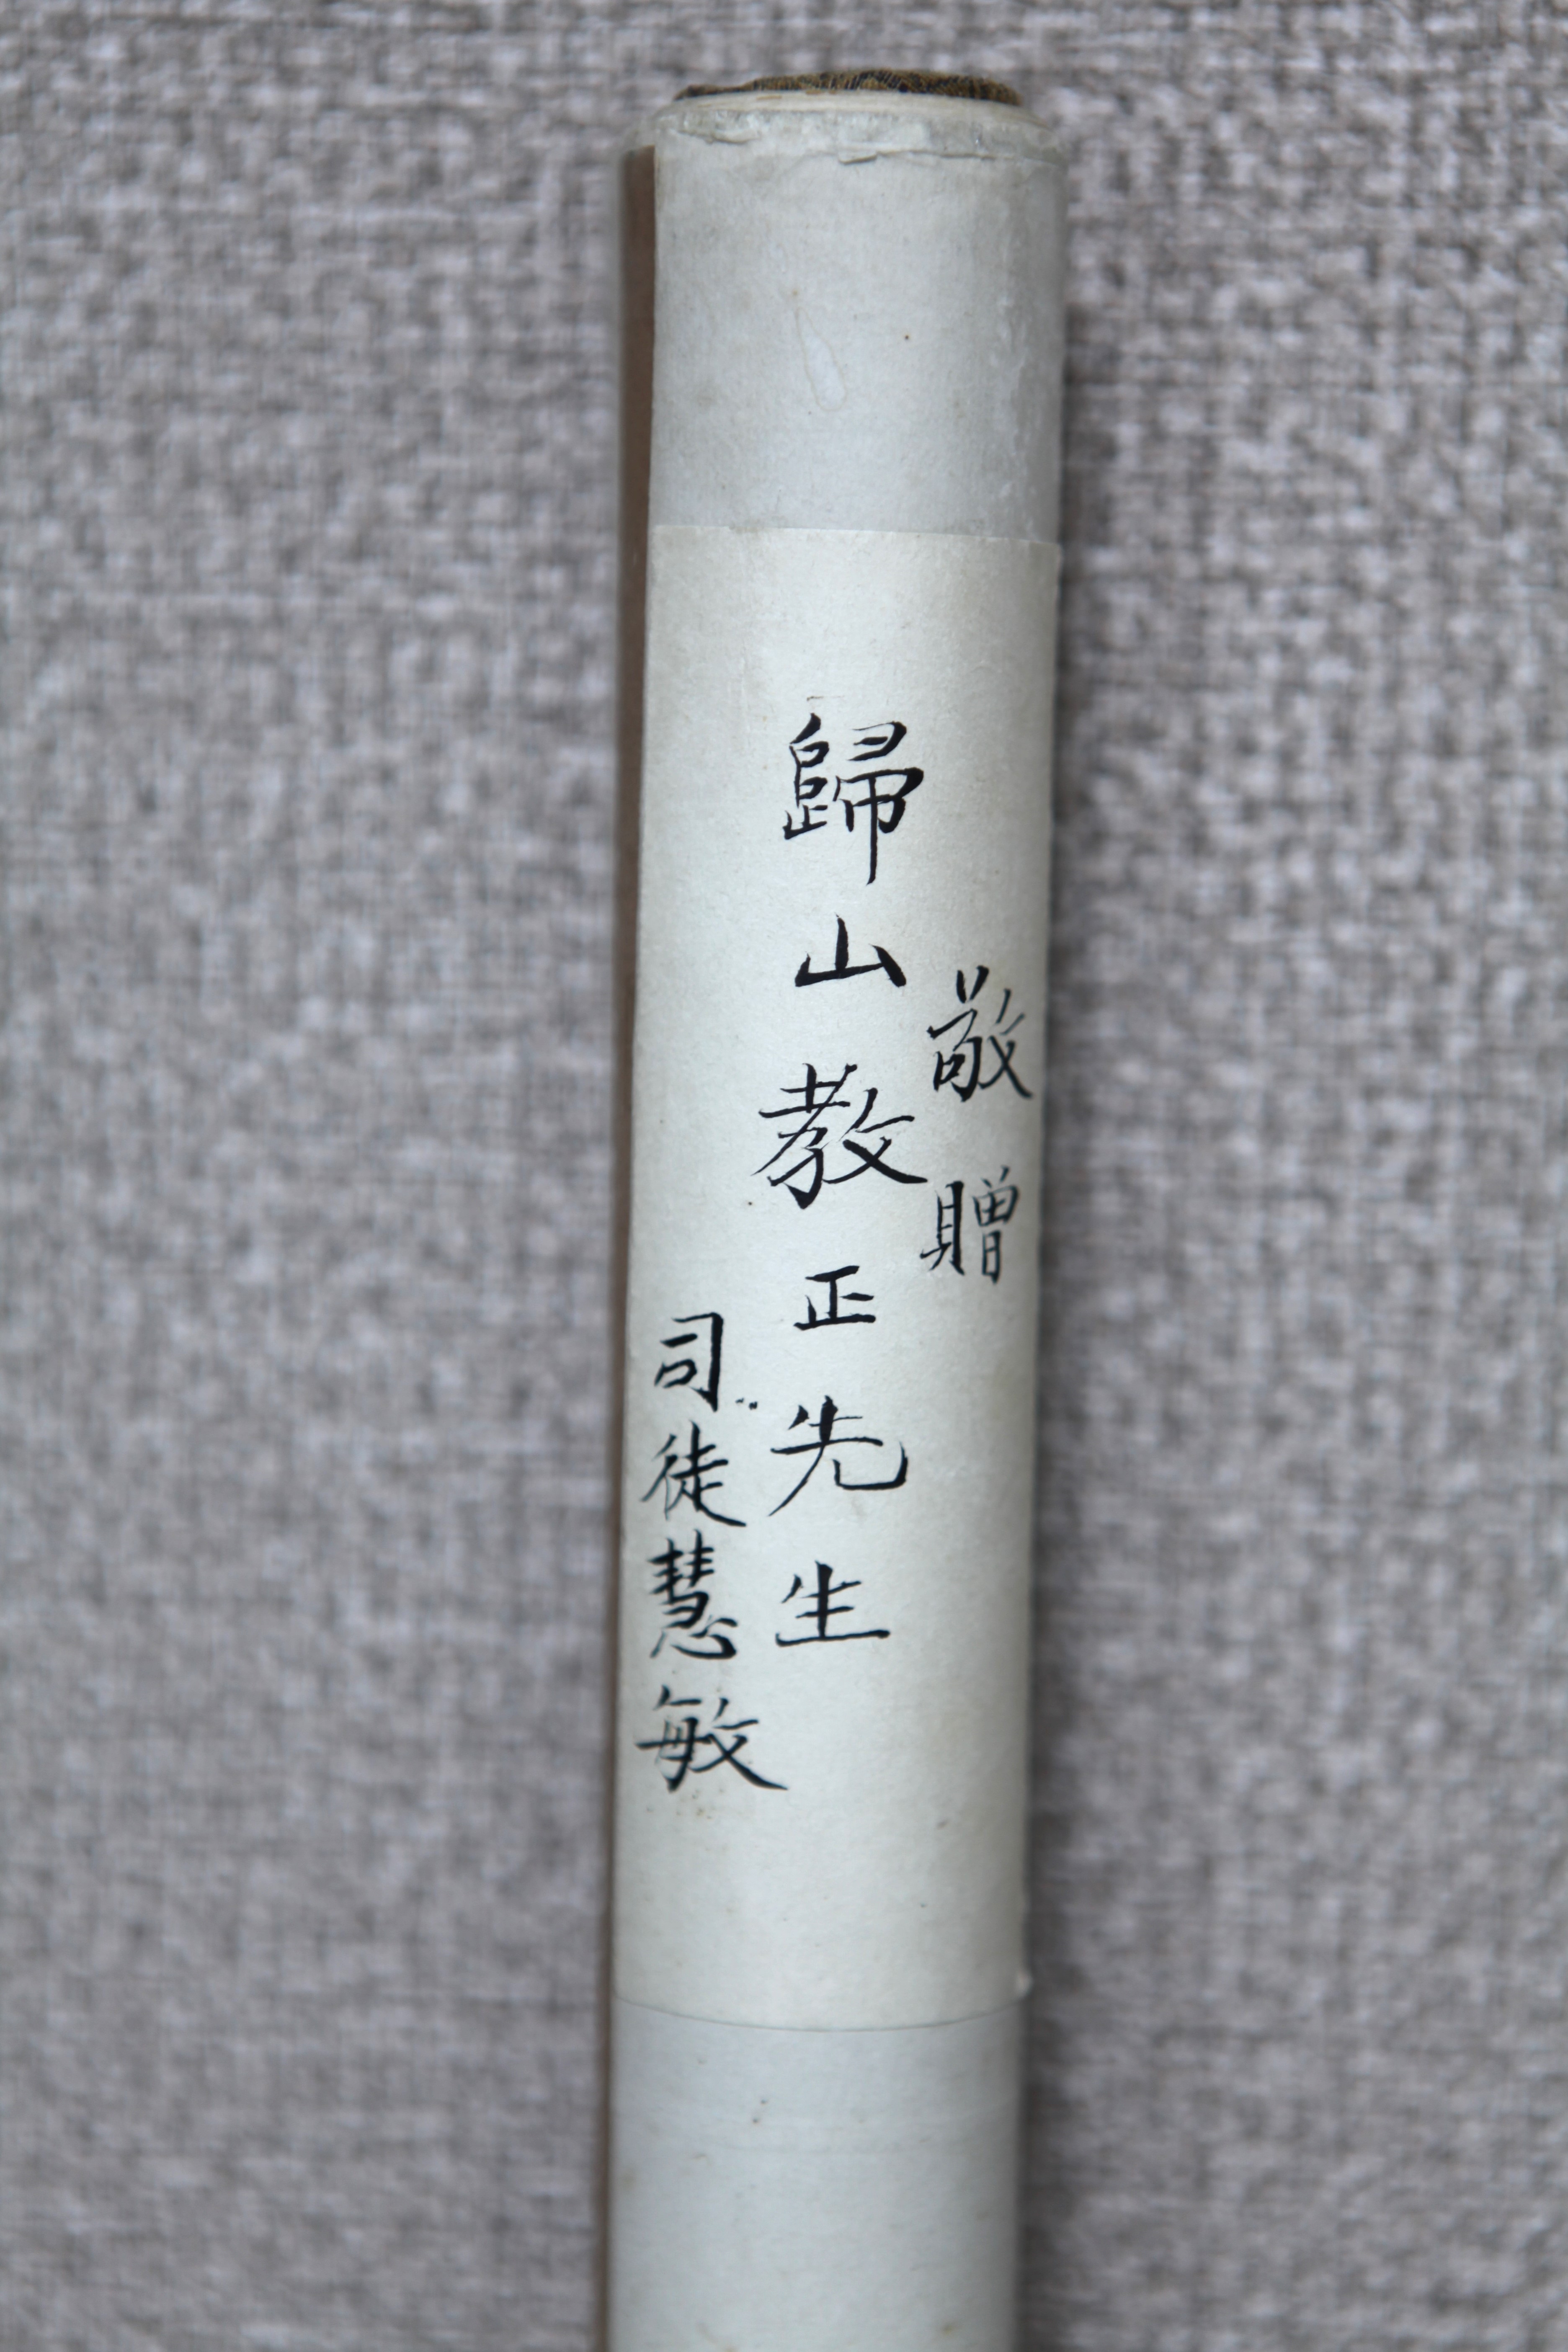 敬贈
歸山教正先生
司徒慧敏